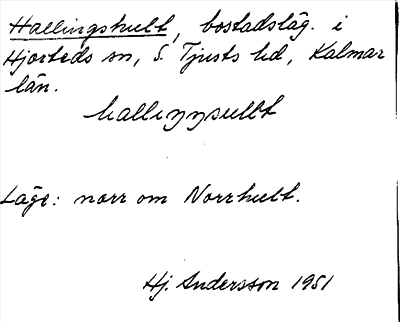 Hallingshult, bostadsläg. i
Hjorteds sn, S. Tjusts hd, Kalmar
län.
hallıŋŋsullt
Läge: norr om Norrhult.
Hj. Andersson 1951